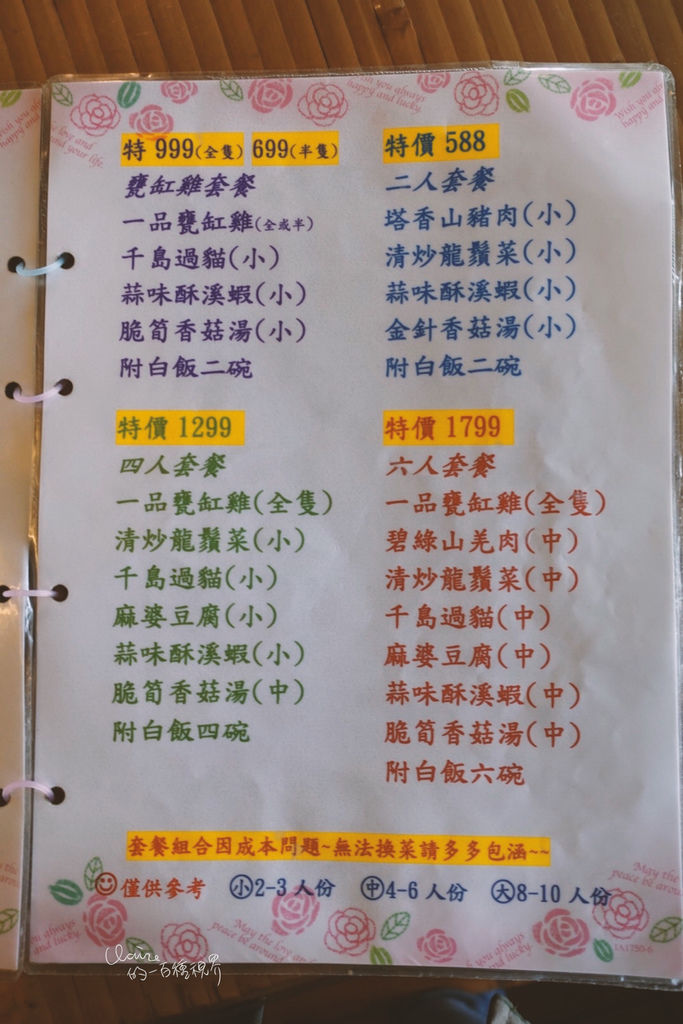 特 999(全隻) 699(半隻)
甕缸雞套餐
一品甕缸雞(全或半)
千島過貓(小)
蒜味酥溪蝦(小)
脆筍香菇湯(小)
附白飯二碗
特價 588
二人套餐
塔香山豬肉(小)
清炒龍鬚菜(小)
蒜味酥溪蝦(小)
金針香菇湯(小)
附白飯二碗
特價 1299
四人套餐
一品甕缸雞(全隻)
清炒龍鬚菜(小)
千島過貓(小)
麻婆豆腐(小)
蒜味酥溪蝦(小)
脆筍香菇湯(中)
附白飯四碗
特價 1799
六人套餐
一品甕缸雞(全隻)
碧綠山羌肉(中)
清炒龍鬚菜(中)
千島過貓(中)
麻婆豆腐(中)
蒜味酥溪蝦(中)
脆筍香菇湯(中)
附白飯六碗
套餐組合因成本問題~無法換菜請多多包涵~~
僅供參考 小2-3 人份 中4-6 人份 大8-10 人份
Claire
的一百種視界